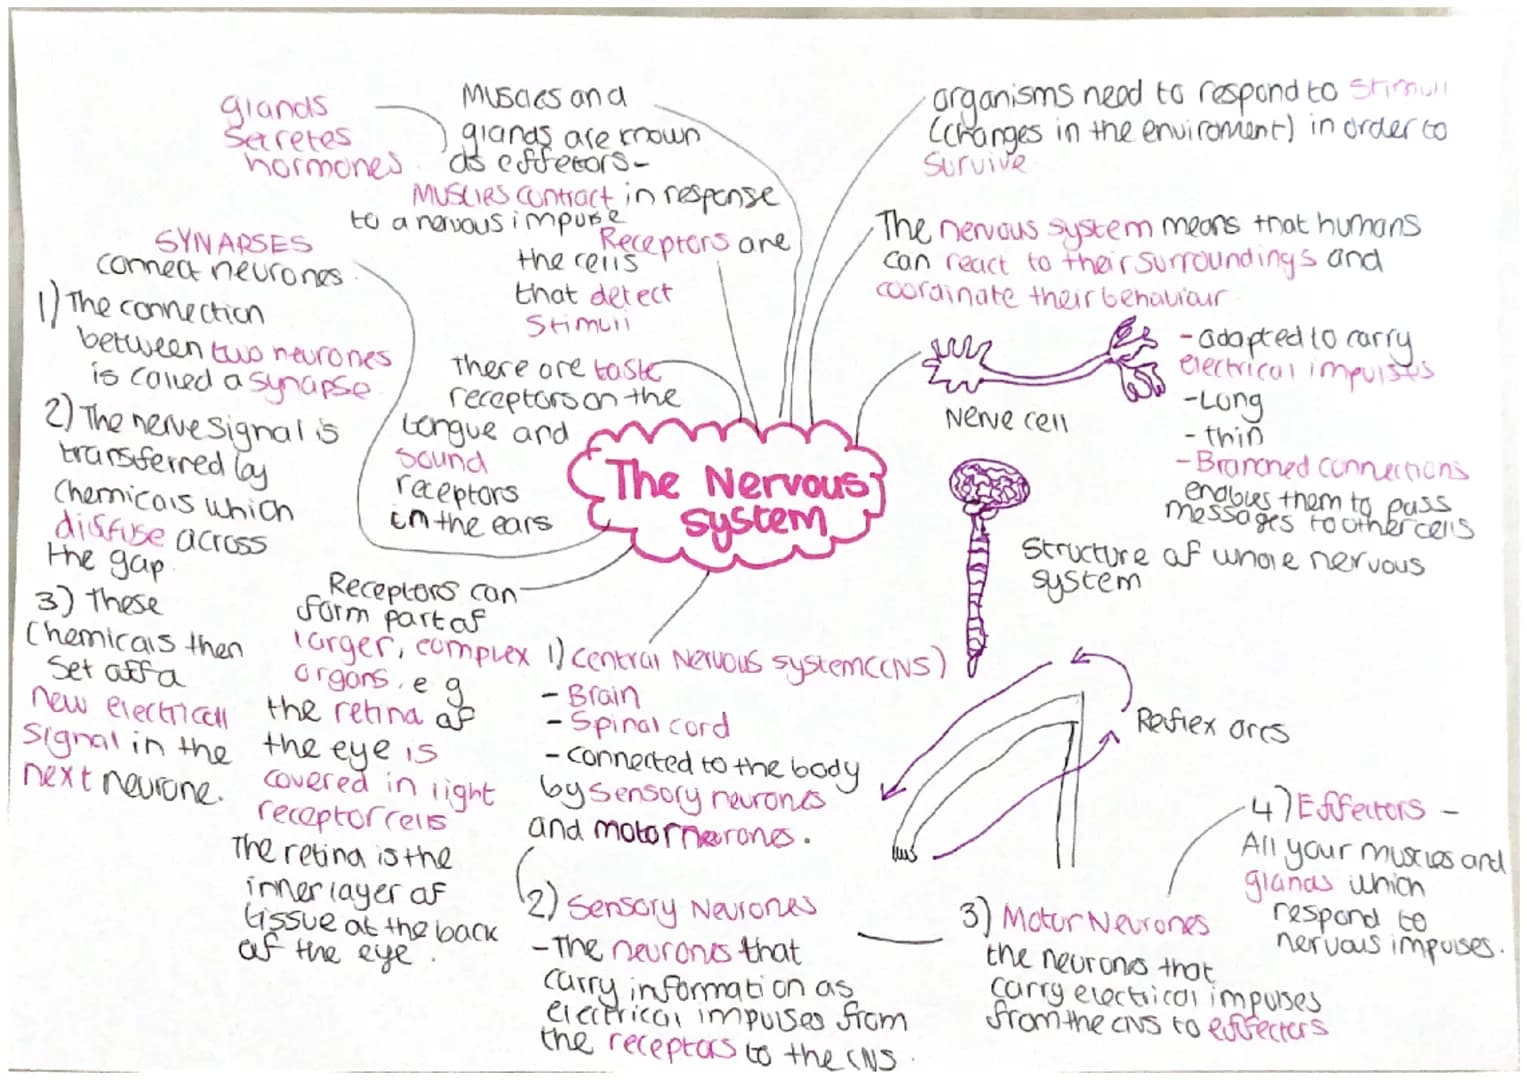 The Nervous
system
glands
secretes
hormones
Muscles and
glands are known
as effetors-
Muscles contract in response
to a nervous impuse
Receptors are
the cells
that detect
Stimuli
There are taste
receptors on the
tongue and
sound
receptors
in the ears
SYNAPSES
connect neurones
1) The connection
between two neurones
is called a synapse
2) The nerve signal is
transferred by
chemicals which
diffuse across
the gap.
3) These
chemicals then
set off a
new electricall
signal in the
next neurone.
Receptors can
form part of
larger, complex
organs. e g
the retina of
the eye is
covered in light
receptor cells
The retina is the
inner layer of
tissue at the back
of the eye.
1) Central Nervous system(CNS)
- Brain
- Spinal cord
- connected to the body
by sensory neurones
and motor neurones.
2) Sensory Neurones
-The neurones that
carry information as
electrical impulses from
the receptors to the CNS.
3) Motor Neurones
the neurones that
carry electrical impulses
from the CNS to effectors
4) Effectors -
All your muscles and
glands which
respond to
nervous impulses.
organisms need to respond to stimuli
(changes in the enviroment) in order to
survive
The nervous system means that humans
can react to their surroundings and
coordinate their behaviour
Nerve cell
- adapted to carry
electrical impulses
-Long
- thin
- Branched connections
enables them to pass
messages to other cells
Structure of whole nervous
system
Reflex arcs